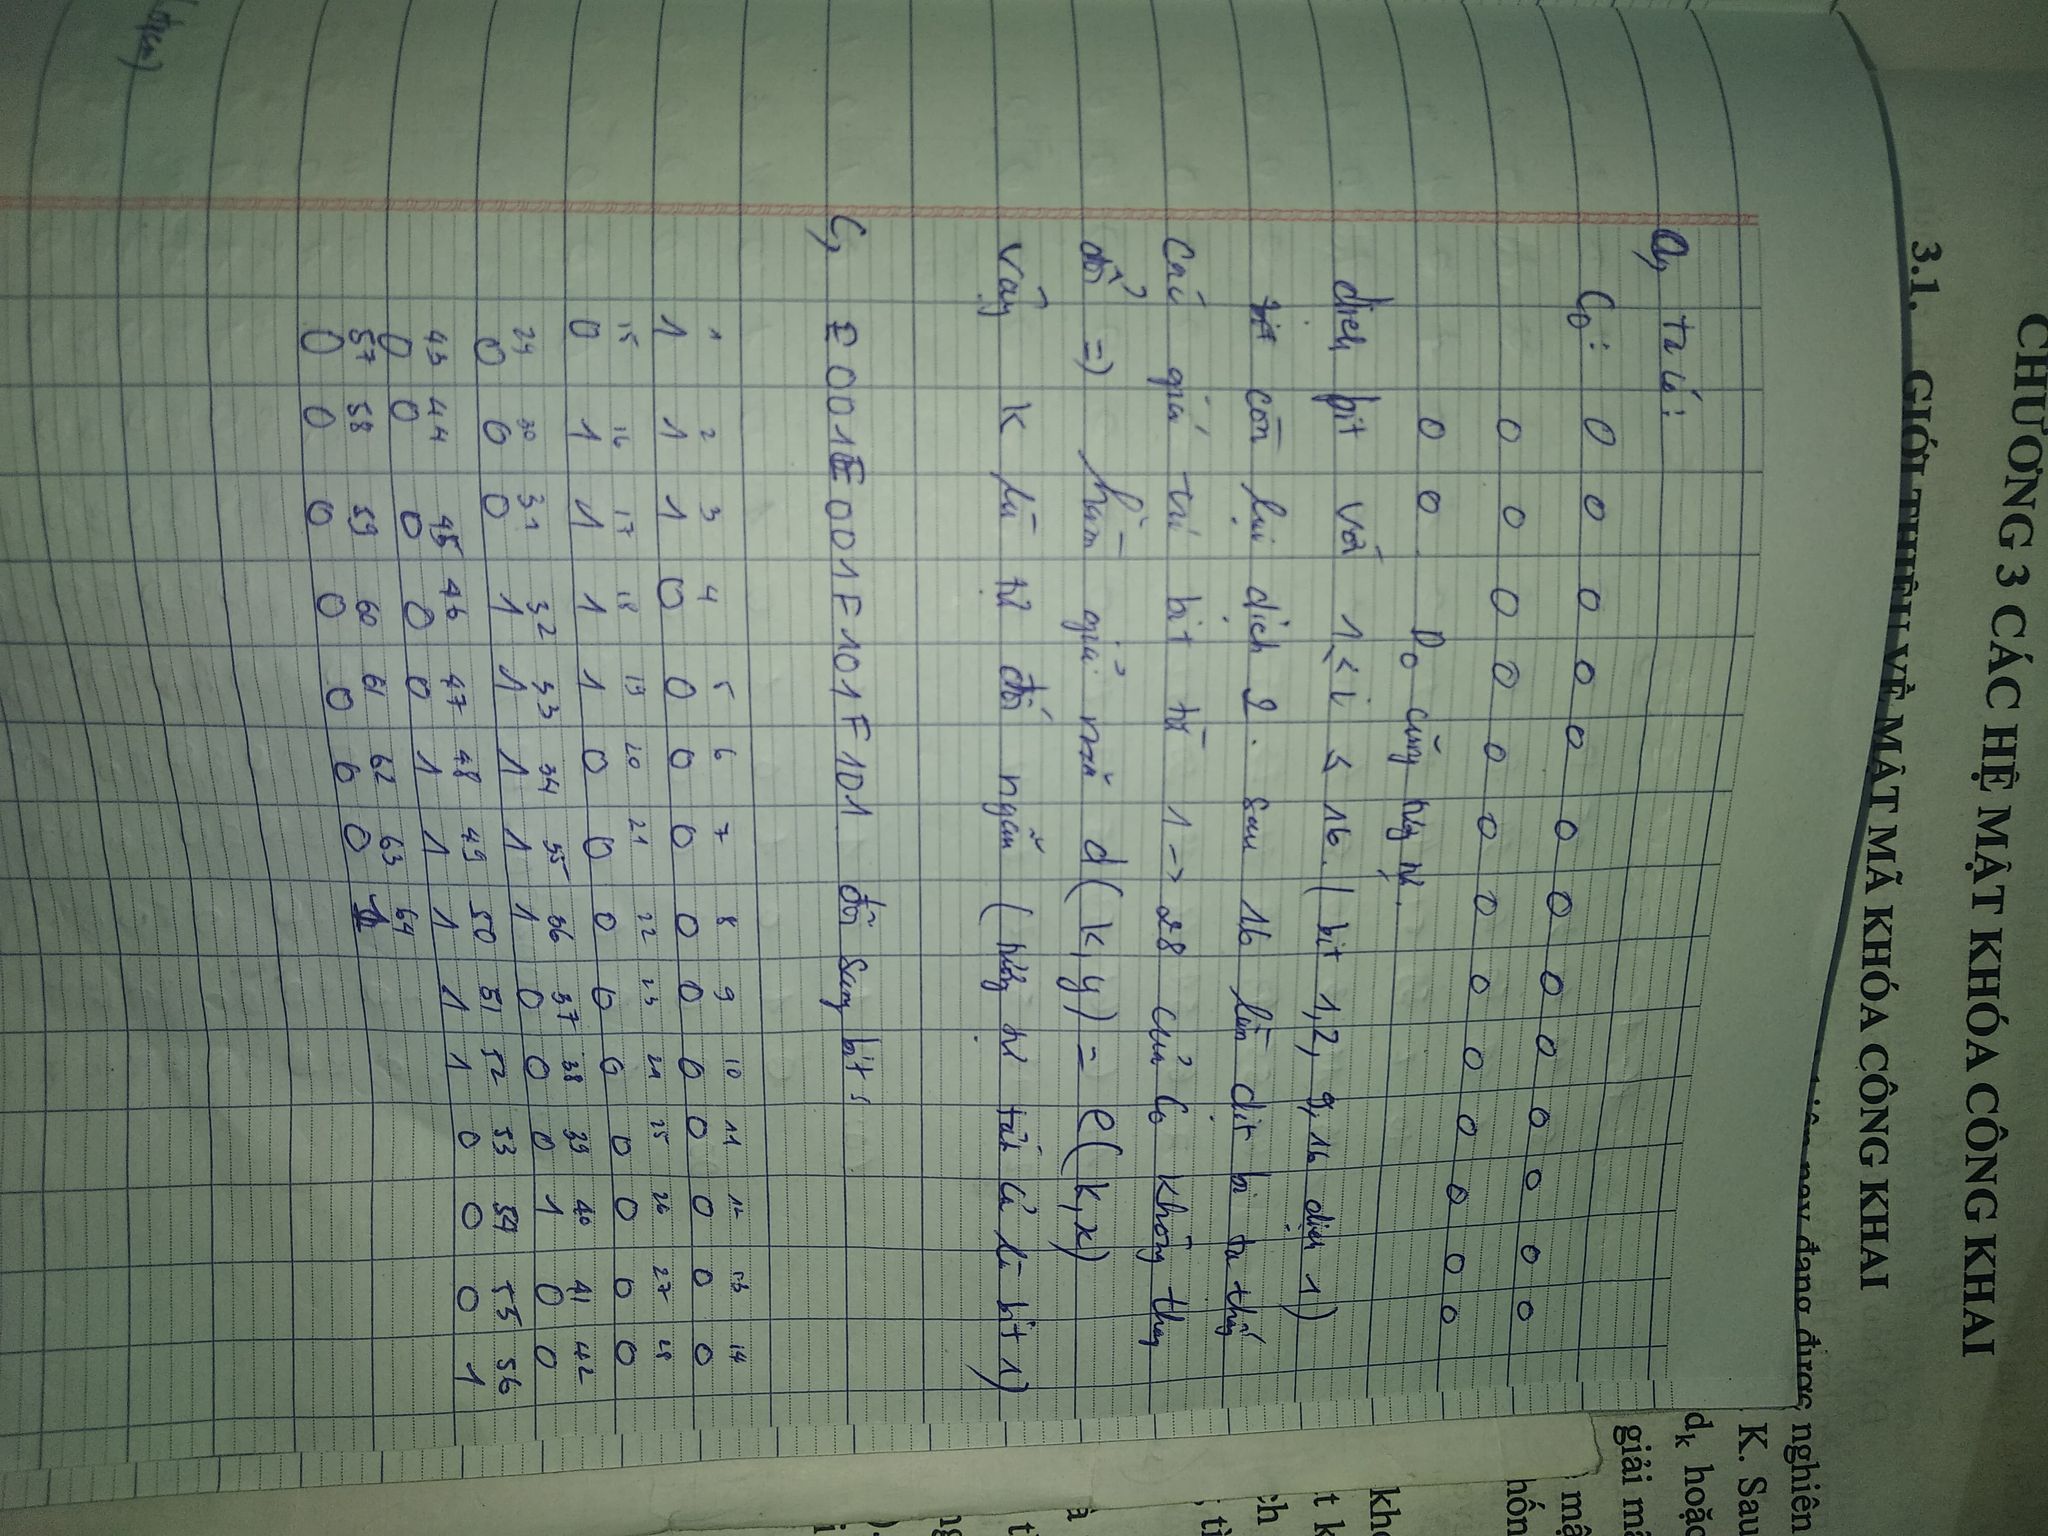 CHƯƠNG 3 CÁC HỆ MẬT KHÓA CÔNG KHAI
3.1. GIỚI THIỆU VỀ MẬT MÃ KHÓA CÔNG KHAI
hiện nay đang được nghiên
K. Sau
dk hoặc
giải mã
a, ta có:
C0: 0 0 0 0 0 0 0 0 0 0 0 0 0
0 0 0 0 0 0 0 0 0 0 0 0 0
0 0 D0 cũng
dịch bit với 1 ≤ i ≤ 16. ( bit 1, 2, 9, 16 dịch 1 )
còn lại dịch 2. sau 16 lần dịt bi ta thấy
các giá trị bit từ 1 -> 28 của C0 không thay
đổi => hàm giả mã d( k, y ) = e( k, x )
vậy k là tự đối ngẫu ( tương tự tất cả là bit 1)
C, E001E001F101F101 đổi sang bit :
1 2 3 4 5 6 7 8 9 10 11 12 13 14
1 1 1 0 0 0 0 0 0 0 0 0 0 0
15 16 17 18 19 20 21 22 23 24 25 26 27 28
0 1 1 1 1 0 0 0 0 0 0 0 0 0
29 30 31 32 33 34 35 36 37 38 39 40 41 42
0 0 0 1 1 1 1 1 0 0 0 1 0 0
43 44 45 46 47 48 49 50 51 52 53 54 55 56
0 0 0 0 0 1 1 1 1 1 0 0 0 1
57 58 59 60 61 62 63 64
0 0 0 0 0 0 0 1